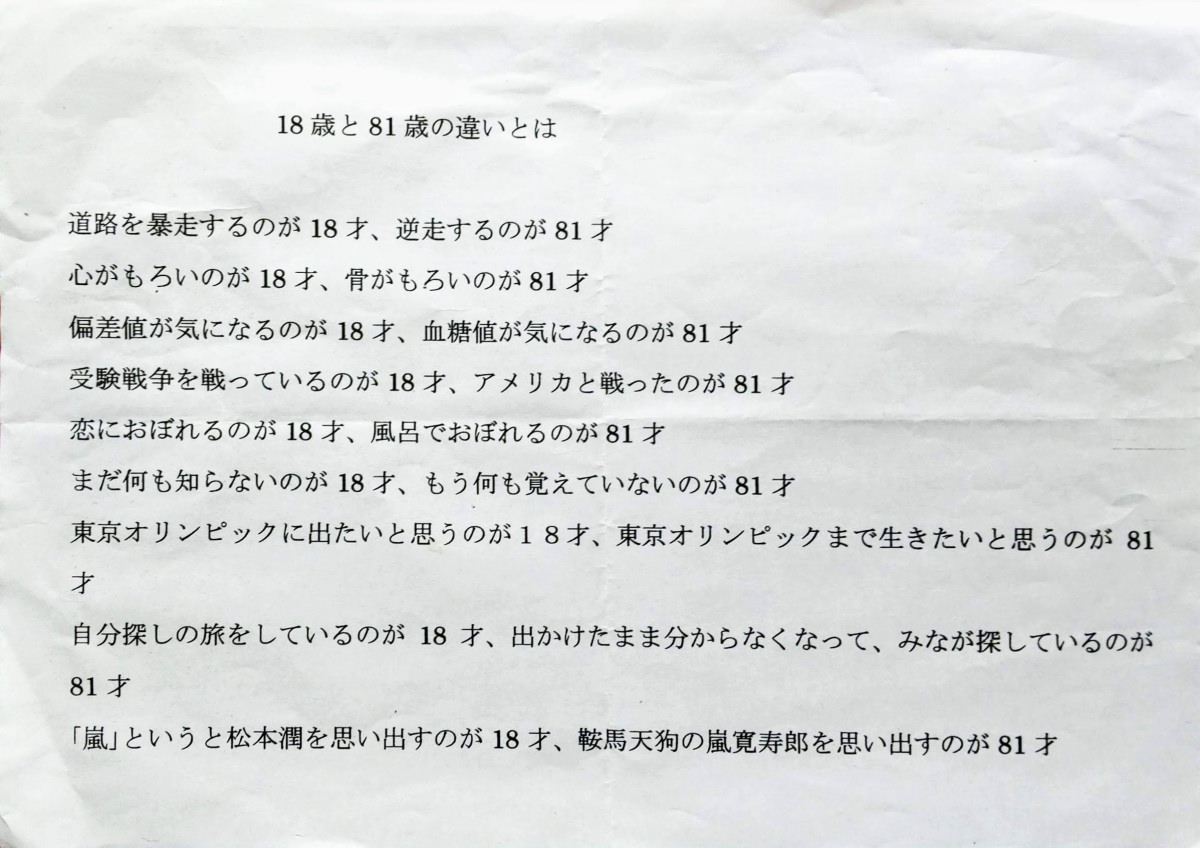 18歳と81歳の違いとは
道路を暴走するのが18才、逆走するのが81才
心がもろいのが18才、骨がもろいのが81才
偏差値が気になるのが18才、血糖値が気になるのが81才
受験戦争を戦っているのが18才、アメリカと戦ったのが81才
恋におぼれるのが18才、風呂でおぼれるのが81才
まだ何も知らないのが18才、もう何も覚えていないのが81才
東京オリンピックに出たいと思うのが１８才、東京オリンピックまで生きたいと思うのが 81
才
自分探しの旅をしているのが 18 才、出かけたまま分からなくなって、みなが探しているのが
81才
「嵐」というと松本潤を思い出すのが18才、鞍馬天狗の嵐寛寿郎を思い出すのが81才